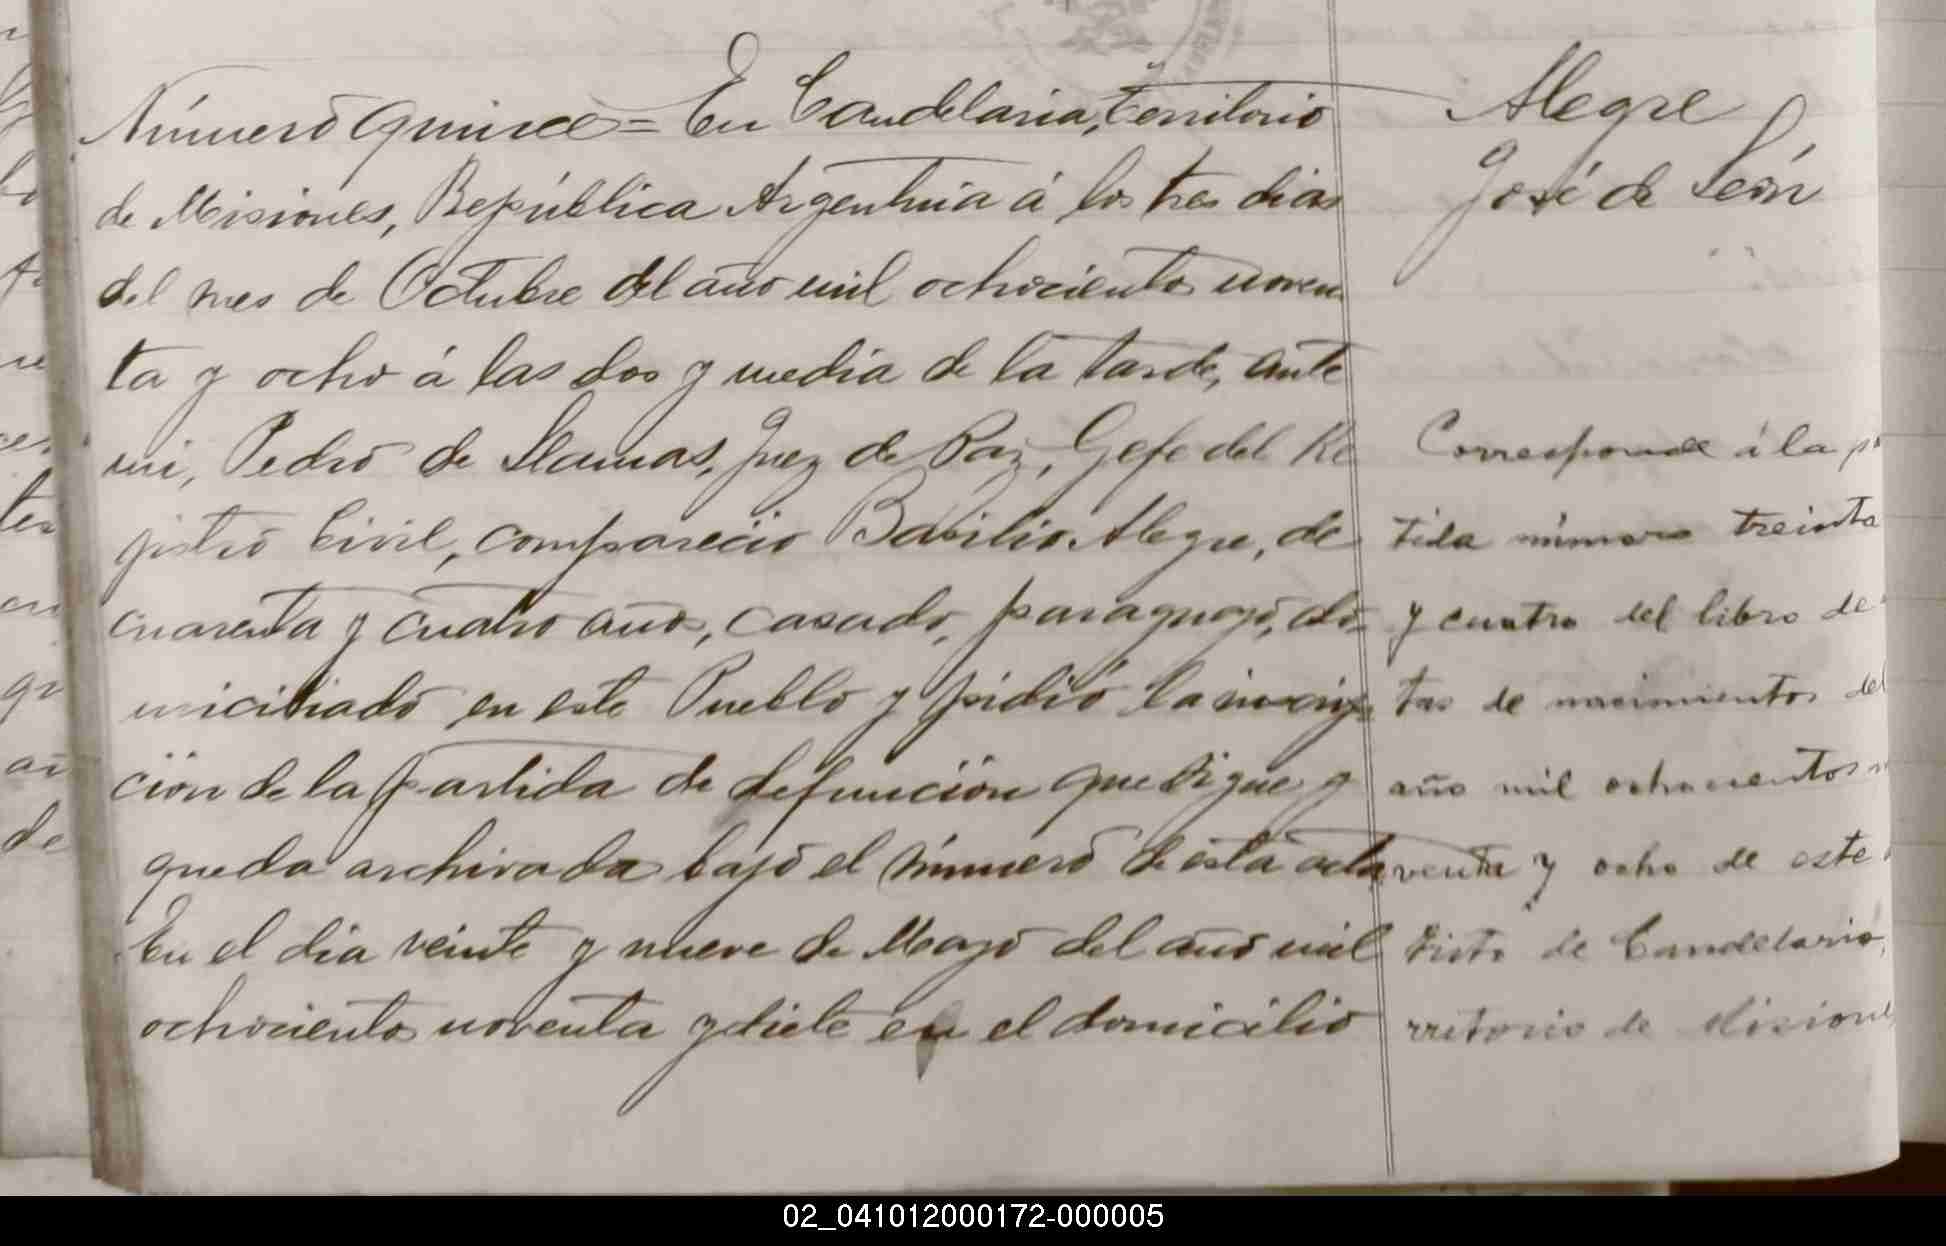 Número Quince = En Candelaria, Territorio
de Misiones, República Argentina á los tres dias
del mes de Octubre del año mil ochocientos noven
ta y ocho á las dos y media de la tarde, ante
mi, Pedro de Llamas, Juez de Paz, Gefe del Re
gistro Civil, compareció Basilio Alegre, de
cuarenta y cuatro años, casado, paraguayo, do=
miciliado en este Pueblo y pidió la inscrip
ción de la partida de defunción que sigue y
queda archivada bajo el número de esta acta
En el dia veinte y nueve de Mayo del año mil
ochocientos noventa y siete en el domicilio
Alegre
José de León
Corresponde á la p
tida número treinta
y cuatro del libro de
tas de nacimientos del
año mil ochocientos n
venta y ocho de este
trito de Candelaria,
rritorio de Misiones
02_041012000172-000005